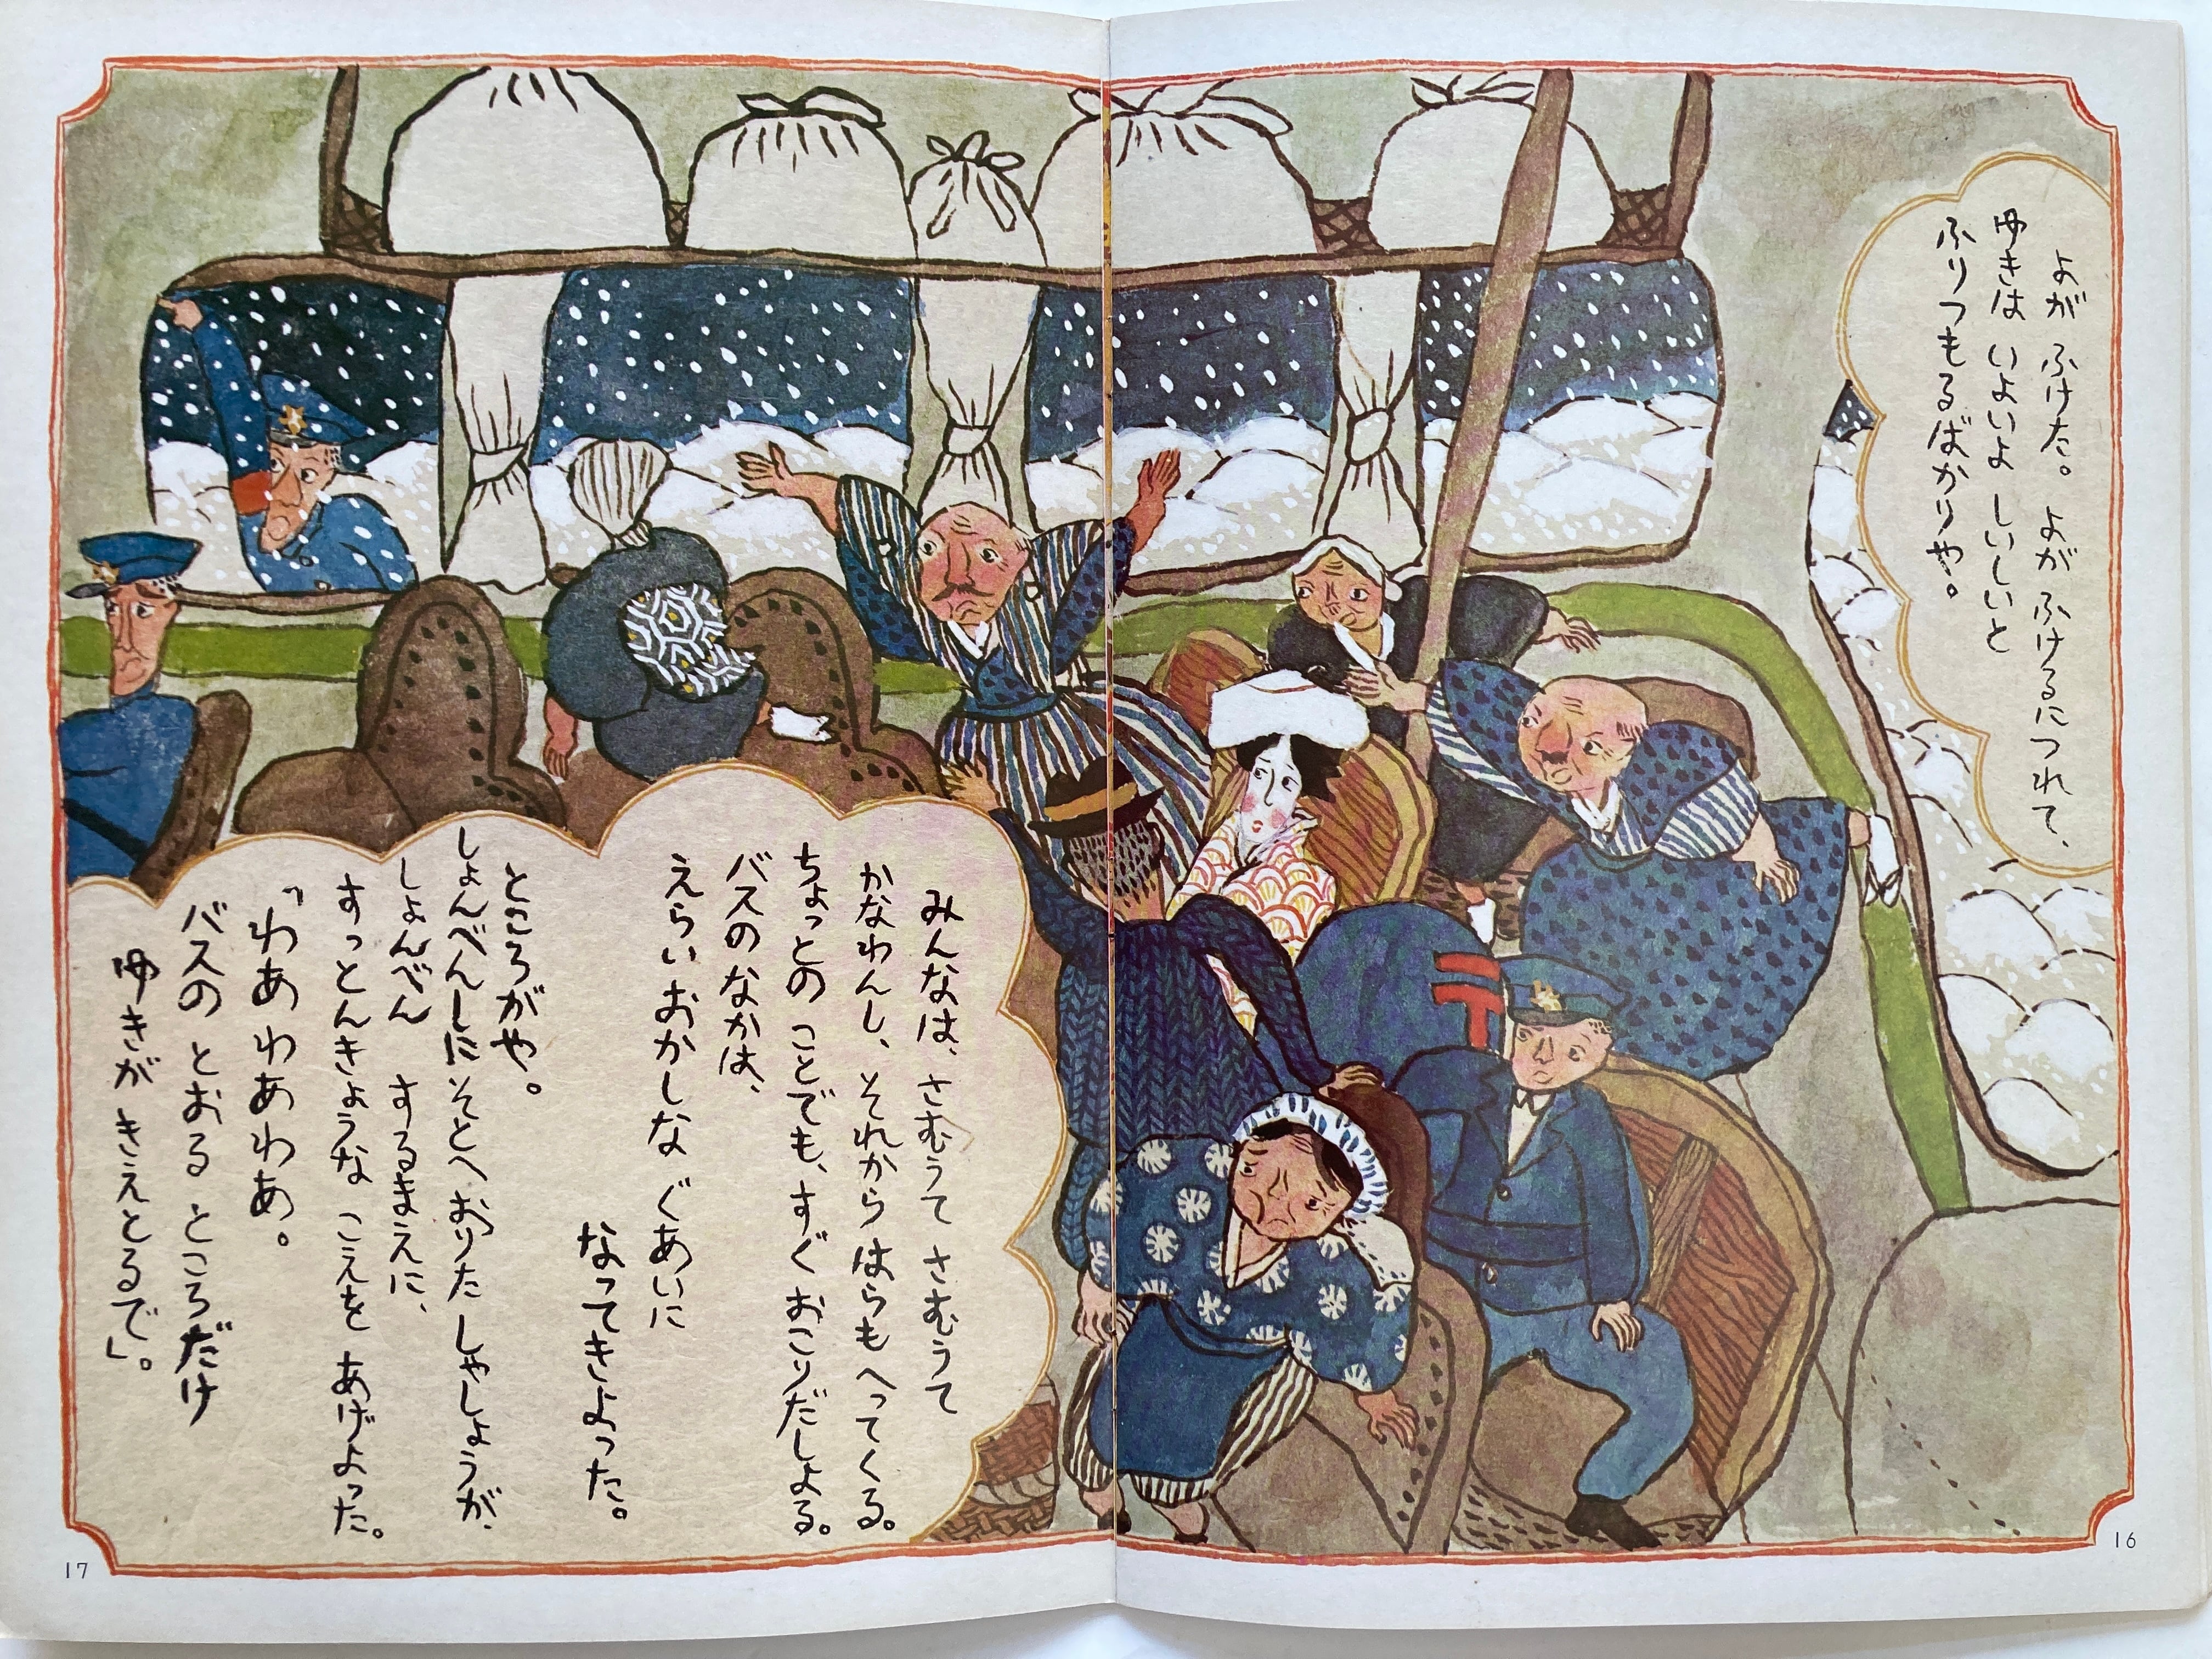 よが ふけた。 よが ふけるにつれて、
ゆきは いよいよ しいしいと
ふりつもるばかりや。
16
みんなは、さむうて さむうて
かなわんし、それから はらも へってくる。
ちょっとの ことでも、すぐ おこりだしよる。
バスのなかは、
えらい おかしな ぐあいに
なってきよった。
ところがや。
しょんべんしに そとへ おりた しゃしょうが、
しょんべん するまえに、
すっとんきょうな こえを あげよった。
「わあ わあ わあ。
バスの とおる ところだけ
ゆきが きえとるで」。
17